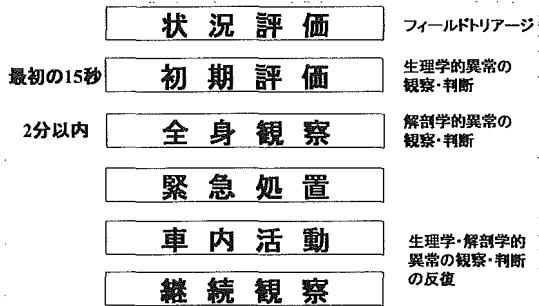 状況評価 フィールドトリアージ
最初の15秒 初期評価 生理学的異常の
観察・判断
2分以内 全身観察 解剖学的異常の
観察・判断
緊急処置
車内活動 生理学・解剖学的
異常の観察・判断
の反復
継続観察